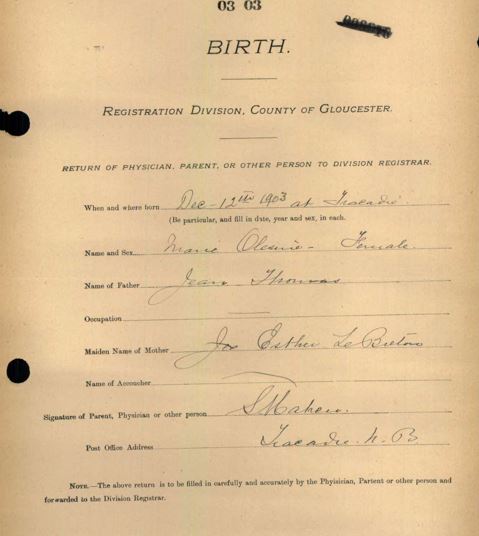 03 03
BIRTH.
REGISTRATION DIVISION, COUNTY OF GLOUCESTER.
RETURN OF PHYSICIAN, PARENT, OR OTHER PERSON TO DIVISION REGISTRAR.
When and where born Dec - 12th 1903 at Tracadie.
(Be particular, and fill in date, year and sex, in each.
Name and Sex Marie - Female.
Name of Father Jean Thomas
Occupation
Maiden Name of Mother Esther LeBreton
Name of Accoucher
Signature of Parent, Physician or other person
Post Office Address Tracadie N. B.
NOTE.—The above return is to be filled in carefully and accurately by the Phyisician, Partent or other person and
forwarded to the Division Registrar.